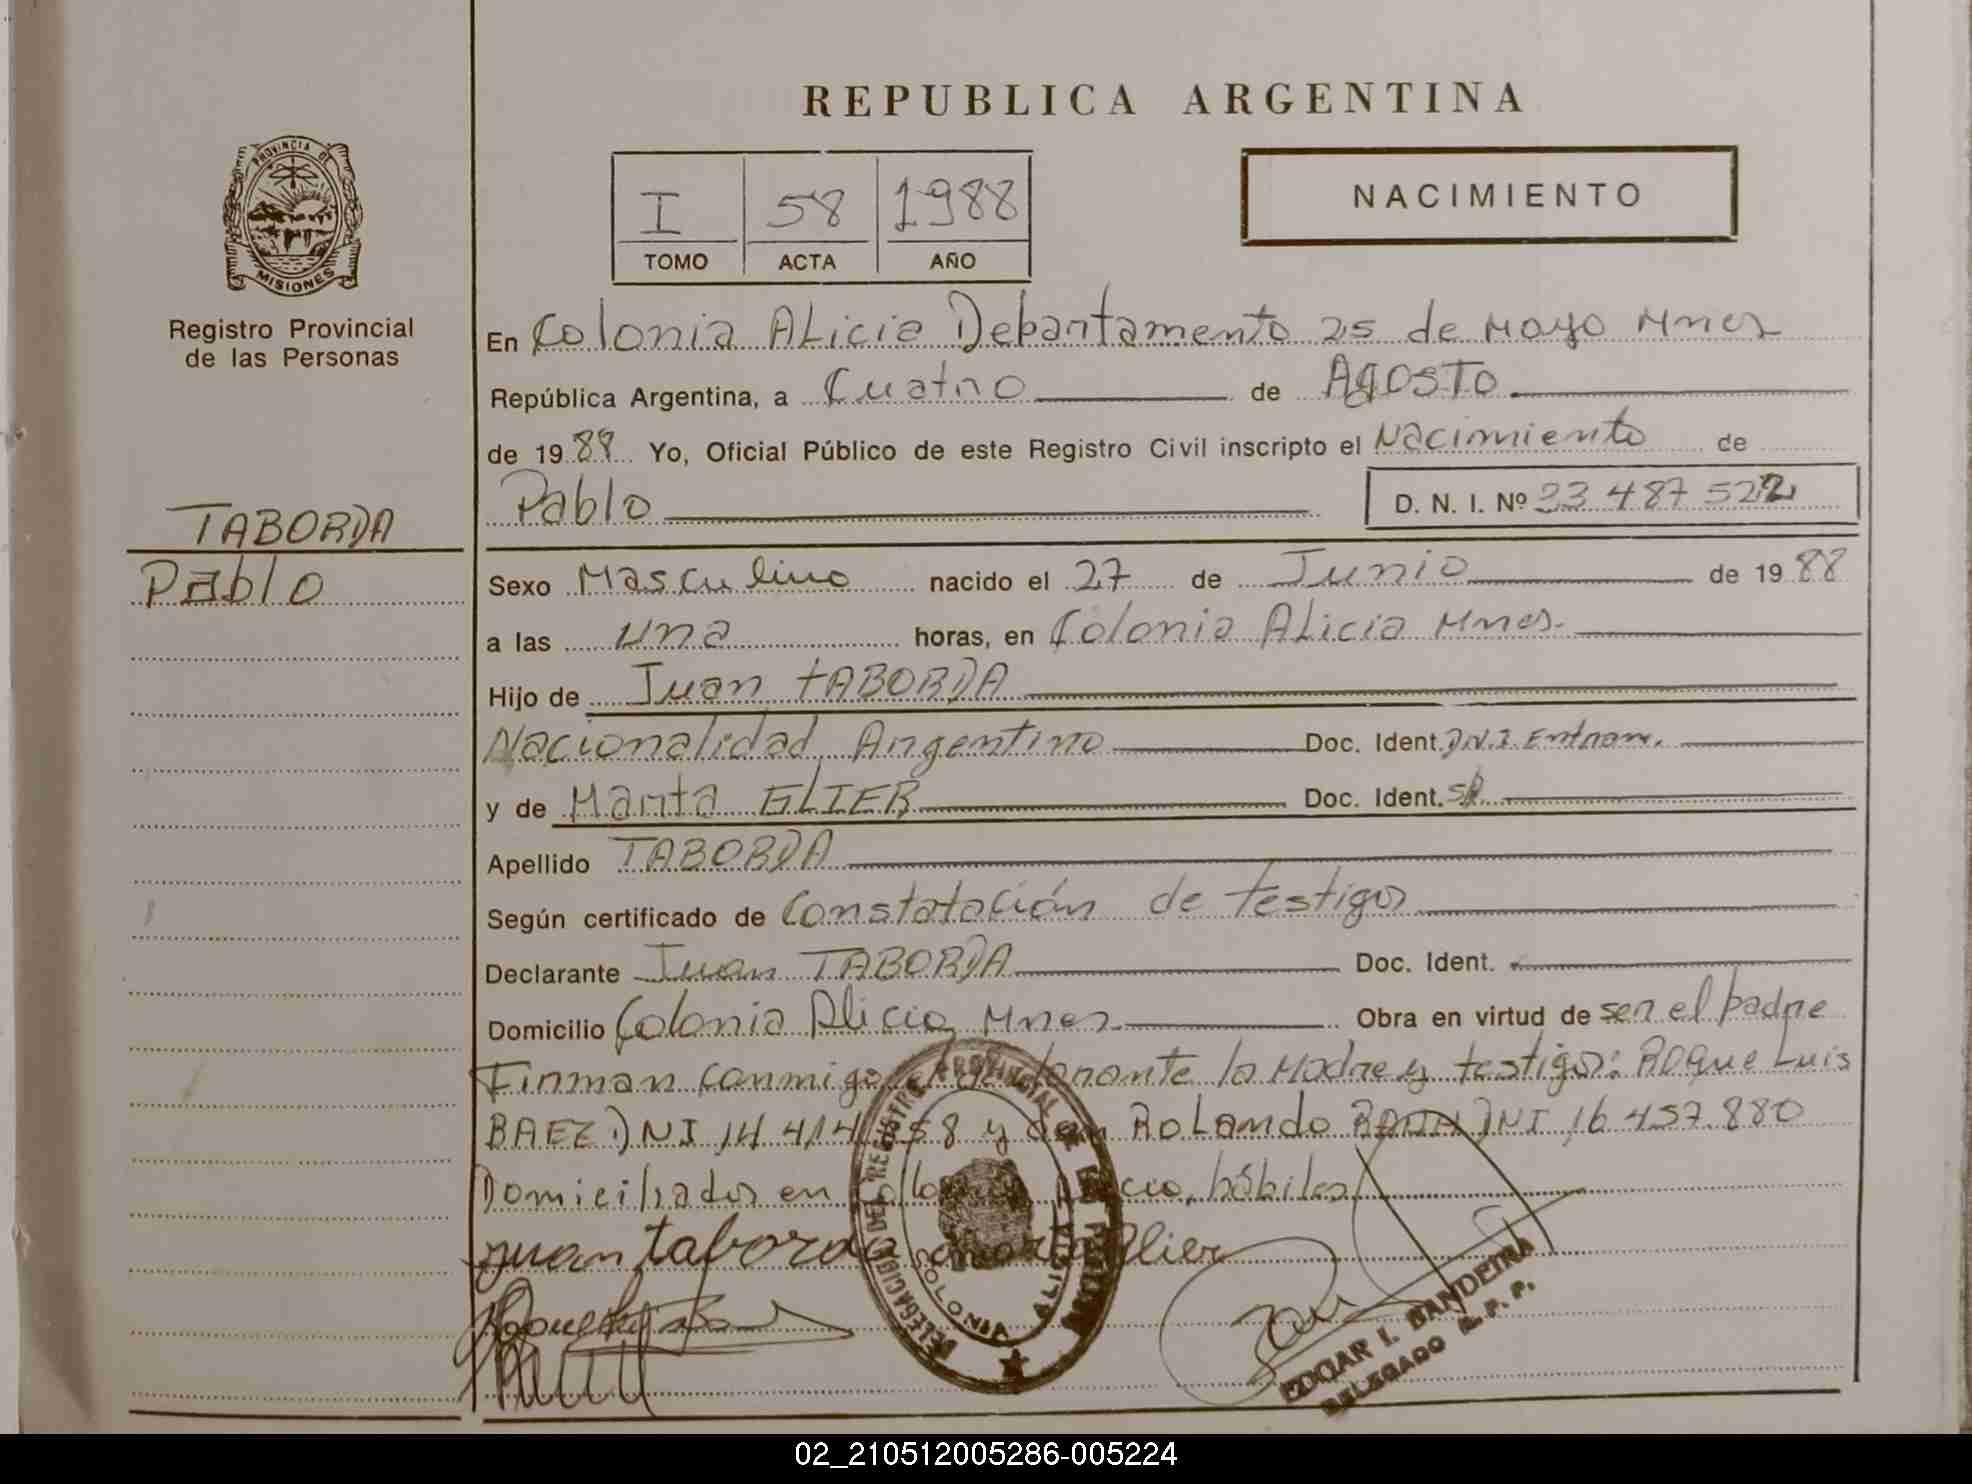 REPUBLICA ARGENTINA
PROVINCIA DE
MISIONES
Registro Provincial
de las Personas
I 58 1988
TOMO ACTA AÑO
NACIMIENTO
En Colonia ALicia Departamento 25 de Mayo Mnes
República Argentina, a Cuatro de AGOSTO
de 19 88 Yo, Oficial Público de este Registro Civil inscripto el Nacimiento de
Pablo D. N. I. Nº 33 487 522
TABORDA
Pablo
Sexo Masculino nacido el 27 de Junio de 19 88
a las una horas, en Colonia ALicia Mnes.
Hijo de Juan TABORDA
Nacionalidad Argentino Doc. Ident. D.N.I. Entram.
y de Marta GLIER Doc. Ident.
Apellido TABORDA
Según certificado de Constatación de testigos
Declarante Juan TABORDA Doc. Ident.
Domicilio Colonia Alicia Mnes. Obra en virtud de ser el padre
Firman conmigo el declarante la Madre y testigos: ROque Luis
BAEZ DNI 14 414 58 y don ROLando DNI 16 457.880
Domiciliados en Colonia Alicia, hábiles
juan taborda marta Glier
DELEGACION DEL REGISTRO PROVINCIAL DE LAS PERSONAS
COLONIA ALICIA
EDGAR I. BANDEIRA
DELEGADO R. P. P.
02_210512005286-005224